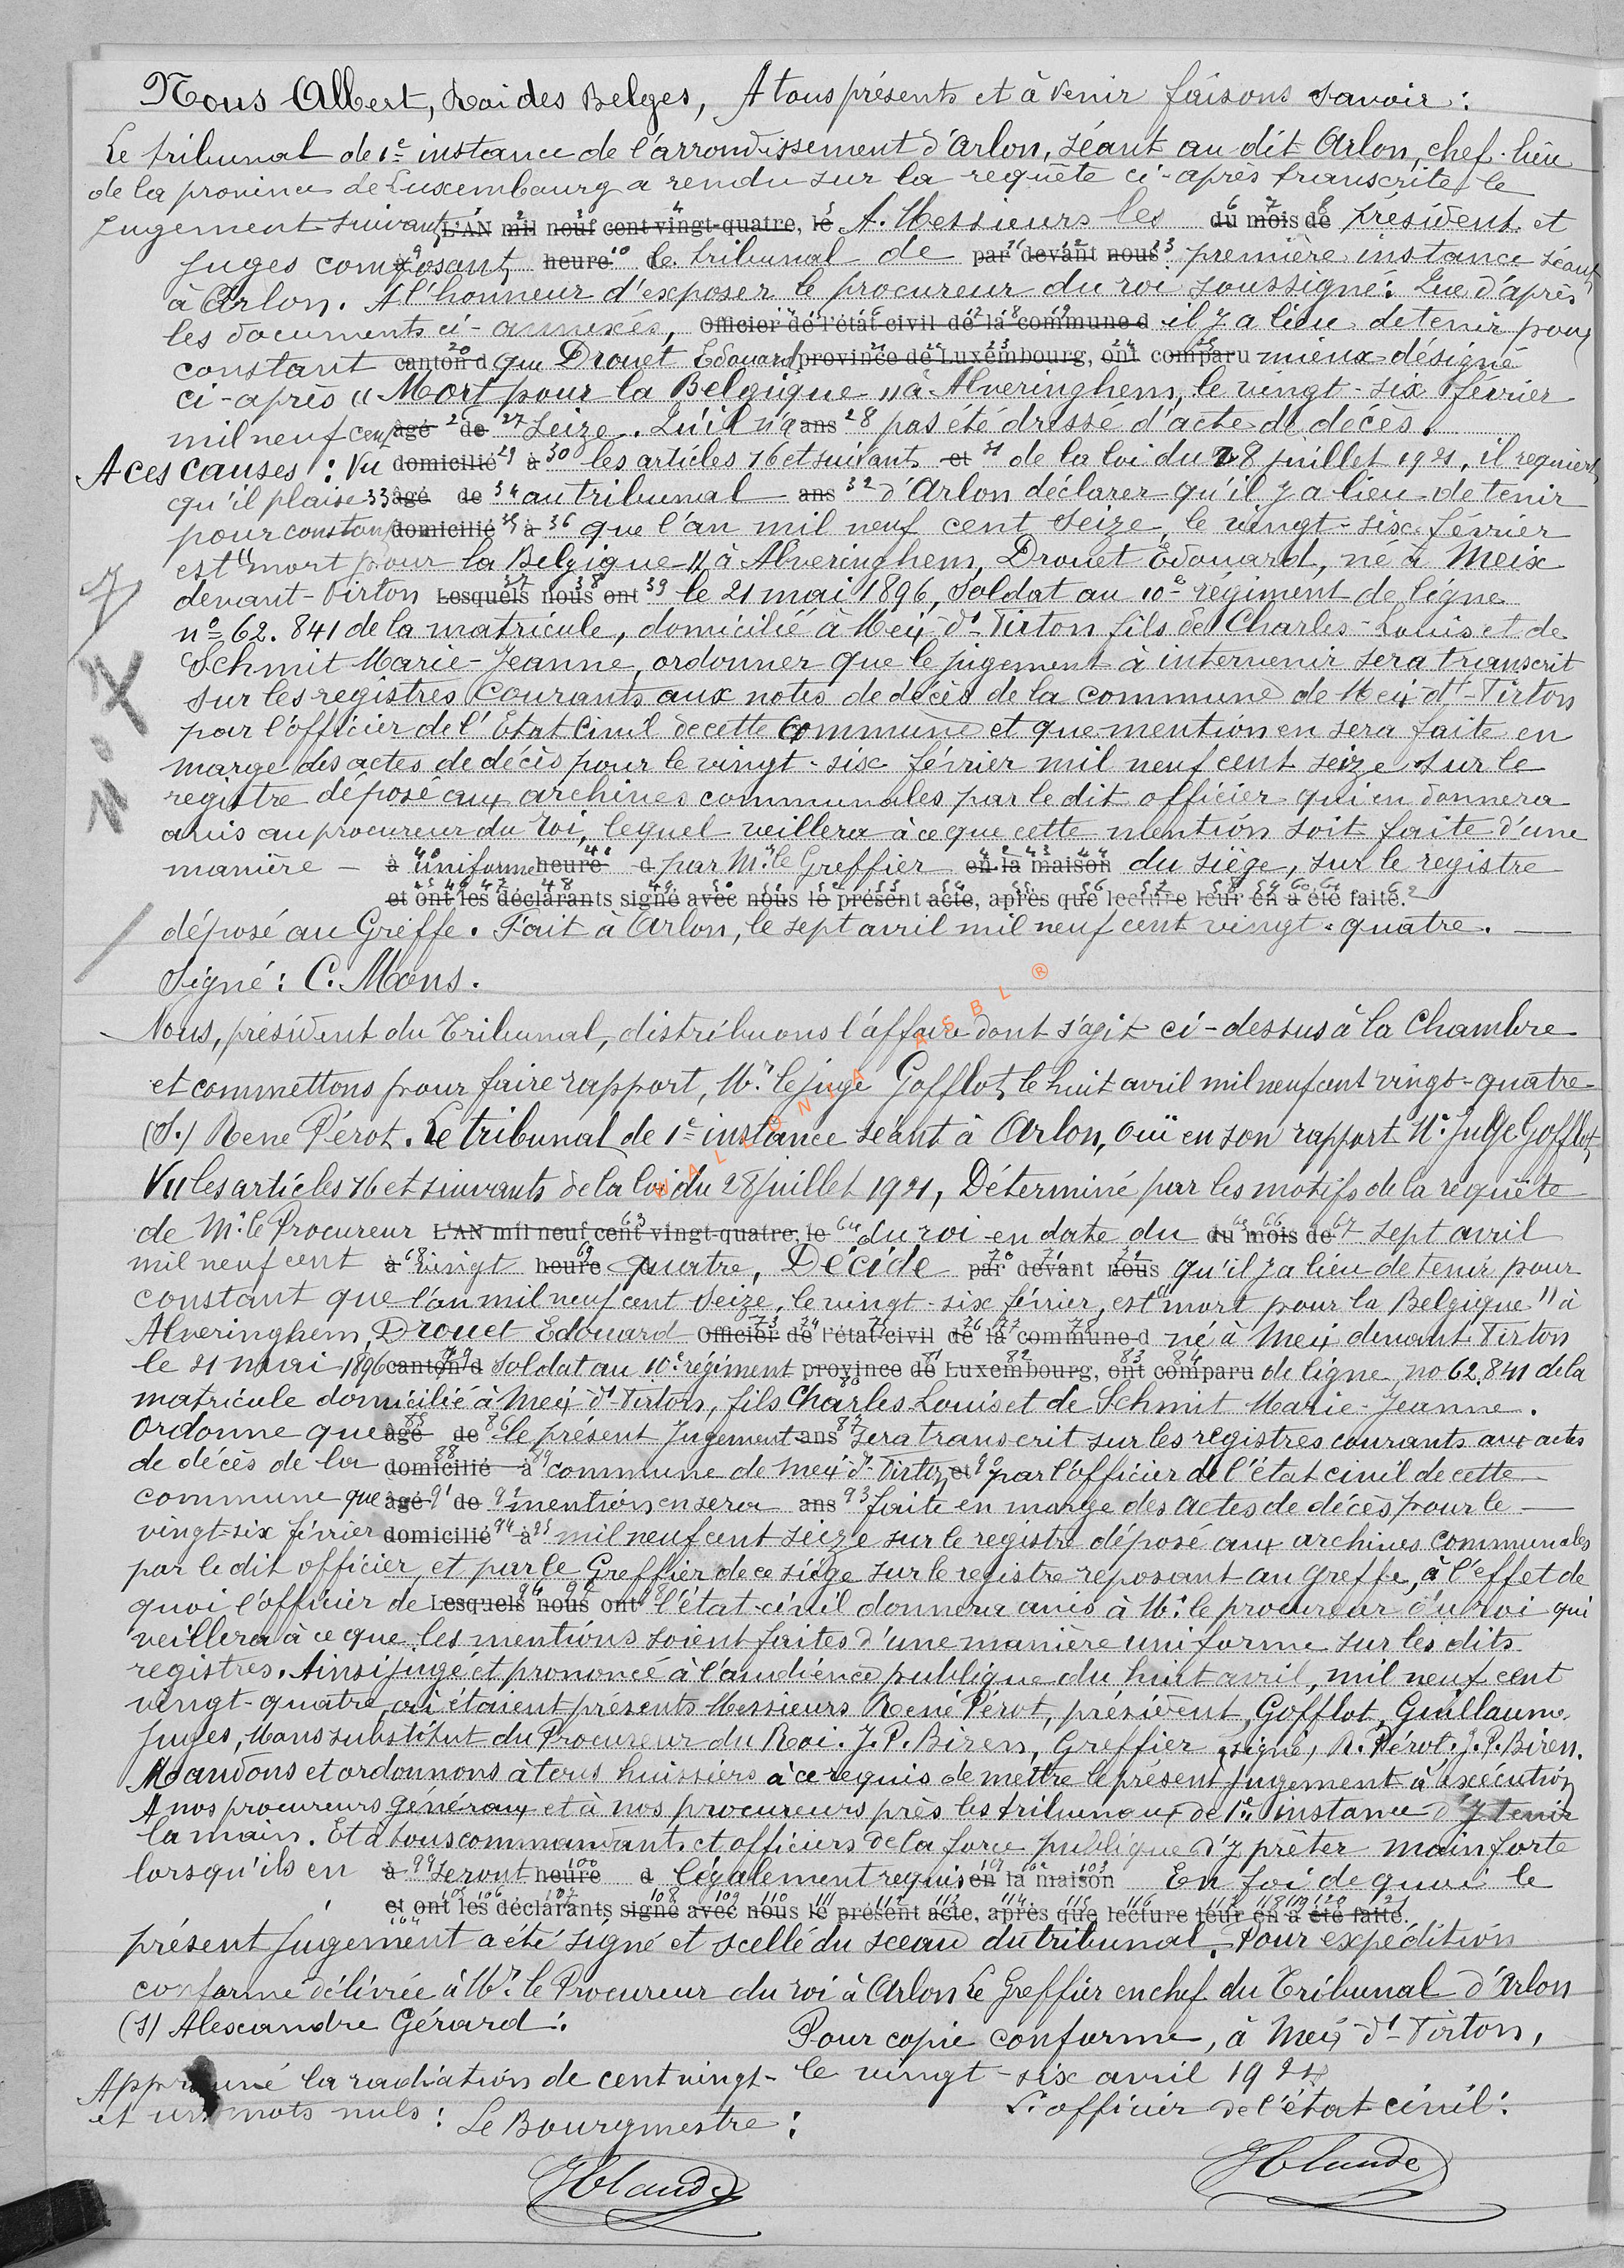 Nous Albert, Roi des Belges, A tous présents et à venir faisons savoir :
Le tribunal de 1e instance de l'arrondissement d'Arlon, séant au dit Arlon, chef-lieu
de la province de Luxembourg a rendu sur la requête ci-après transcrite le
Jugement suivant L'AN mil neuf cent vingt-quatre, le A. Messieurs les du mois de président et
Juges composant, heure le tribunal de par devant nous première instance séant
à Arlon. A l'honneur d'exposer le procureur du roi soussigné : Que d'après
les documents ci-annexés, Officier de l'état civil de la commune d il y a lieu de tenir pour
constant canton d que Drouet Edouard province de Luxembourg, ont comparu mieux désigné
ci-après "Mort pour la Belgique" à Alveringhem, le vingt-six février
mil neuf cent âgé de seize. Qu'il n'a ans pas été dressé d'acte de décès.
A ces causes : Vu domicilié à les articles 16 et suivants et de la loi du 28 juillet 1921, il requiert,
qu'il plaise âgé de au tribunal ans d'Arlon déclarer qu'il y a lieu de tenir
pour constant domicilié à que l'an mil neuf cent seize, le vingt-six février
est "mort pour la Belgique" à Alveringhem, Drouet Edouard, né à Meix
devant-Virton Lesquels nous ont le 21 mai 1896, soldat au 10e régiment de ligne
no 62.841 de la matricule, domicilié à Meix-dt-Virton fils de Charles-Louis et de
Schmit Marie-Jeanne, ordonner que le jugement à intervenir sera transcrit
sur les registres courants aux notes de décès de la commune de Meix-dt-Virton
par l'officier de l'Etat Civil de cette commune et que mention en sera faite en
marge des actes de décès pour le vingt-six février mil neuf cent seize sur le
registre déposé aux archives communales par le dit officier qui en donnera
avis au procureur du roi, lequel veillera à ce que cette mention soit faite d'une
manière - à uniforme heure d par Mr le Greffier en la maison du siège, sur le registre
et ont les déclarants signé avec nous le présent acte, après que lecture leur en a été faite.
déposé au Greffe. Fait à Arlon, le sept avril mil neuf cent vingt-quatre.
Signé : C. Mons.
Nous, président du Tribunal, distribuons l'affaire dont s'agit ci-dessus à la Chambre
et commettons pour faire rapport, Mr le juge Gofflot, le huit avril mil neuf cent vingt-quatre
(S.) Rene Pérot. Le tribunal de 1e instance séant à Arlon, ouï en son rapport Mr Juge Gofflot,
Vu les articles 16 et suivants de la loi du 28 Juillet 1921, Déterminé par les motifs de la requête
de Mr le Procureur L'AN mil neuf cent vingt-quatre, le du roi en date du du mois de sept avril
mil neuf cent à vingt heure quatre, Décide par devant nous qu'il y a lieu de tenir pour
constant que l'an mil neuf cent seize, le vingt-six février, est "mort pour la Belgique" à
Alveringhem, Drouet Edouard Officier de l'état civil de la commune d né à Meix devant Virton
le 21 mai 1896 canton d soldat au 10e régiment province de Luxembourg, ont comparu de ligne no 62.841 de la
matricule domicilié à Meix dt Virton, fils Charles-Louis et de Schmit Marie-Jeanne.
Ordonne que âgé de le présent Jugement ans sera transcrit sur les registres courants aux actes
de décès de la domicilié à commune de Meix dt Virton, et par l'officier de l'état civil de cette
commune que âgé de mention en sera ans faite en marge des actes de décès pour le
vingt-six février domicilié à mil neuf cent seize sur le registre déposé aux archives communales
par le dit officier, et par le Greffier de ce siège sur le registre reposant au greffe, à l'effet de
quoi l'officier de Lesquels nous ont l'état-civil donnera avis à Mr le procureur du roi qui
veillera à ce que les mentions soient faites d'une manière uniforme sur les dits
registres. Ainsi jugé et prononcé à l'audience publique du huit avril, mil neuf cent
vingt-quatre, où étaient présents Messieurs René Pérot, président, Gofflot, Guillaume,
Juges, Mons substitut du Procureur du Roi. J.P. Biren, Greffier, signé, R. Pérot. J.P. Biren.
Mandons et ordonnons à tous huissiers à ce requis de mettre le présent jugement à exécution
A nos procureurs généraux et à nos procureurs près les tribunaux de 1e instance d'y tenir
la main. Et à tous commandants et officiers de la force publique d'y prêter main forte
lorsqu'ils en à seront heure d légalement requis en la maison En foi de quoi le
et ont les déclarants signé avec nous le présent acte, après que lecture leur en a été faite.
présent Jugement a été signé et scellé du sceau du tribunal. Pour expédition
conforme délivrée à Mr le Procureur du roi à Arlon Le Greffier en chef du Tribunal d'Arlon
(s) Alexandre Gérard : Pour copie conforme, à Meix-dt-Virton,
Approuvé la radiation de cent vingt- le vingt-six avril 1924
et un mots nuls : Le Bourgmestre : L'officier de l'état civil :
WALLONIA ASBL ®